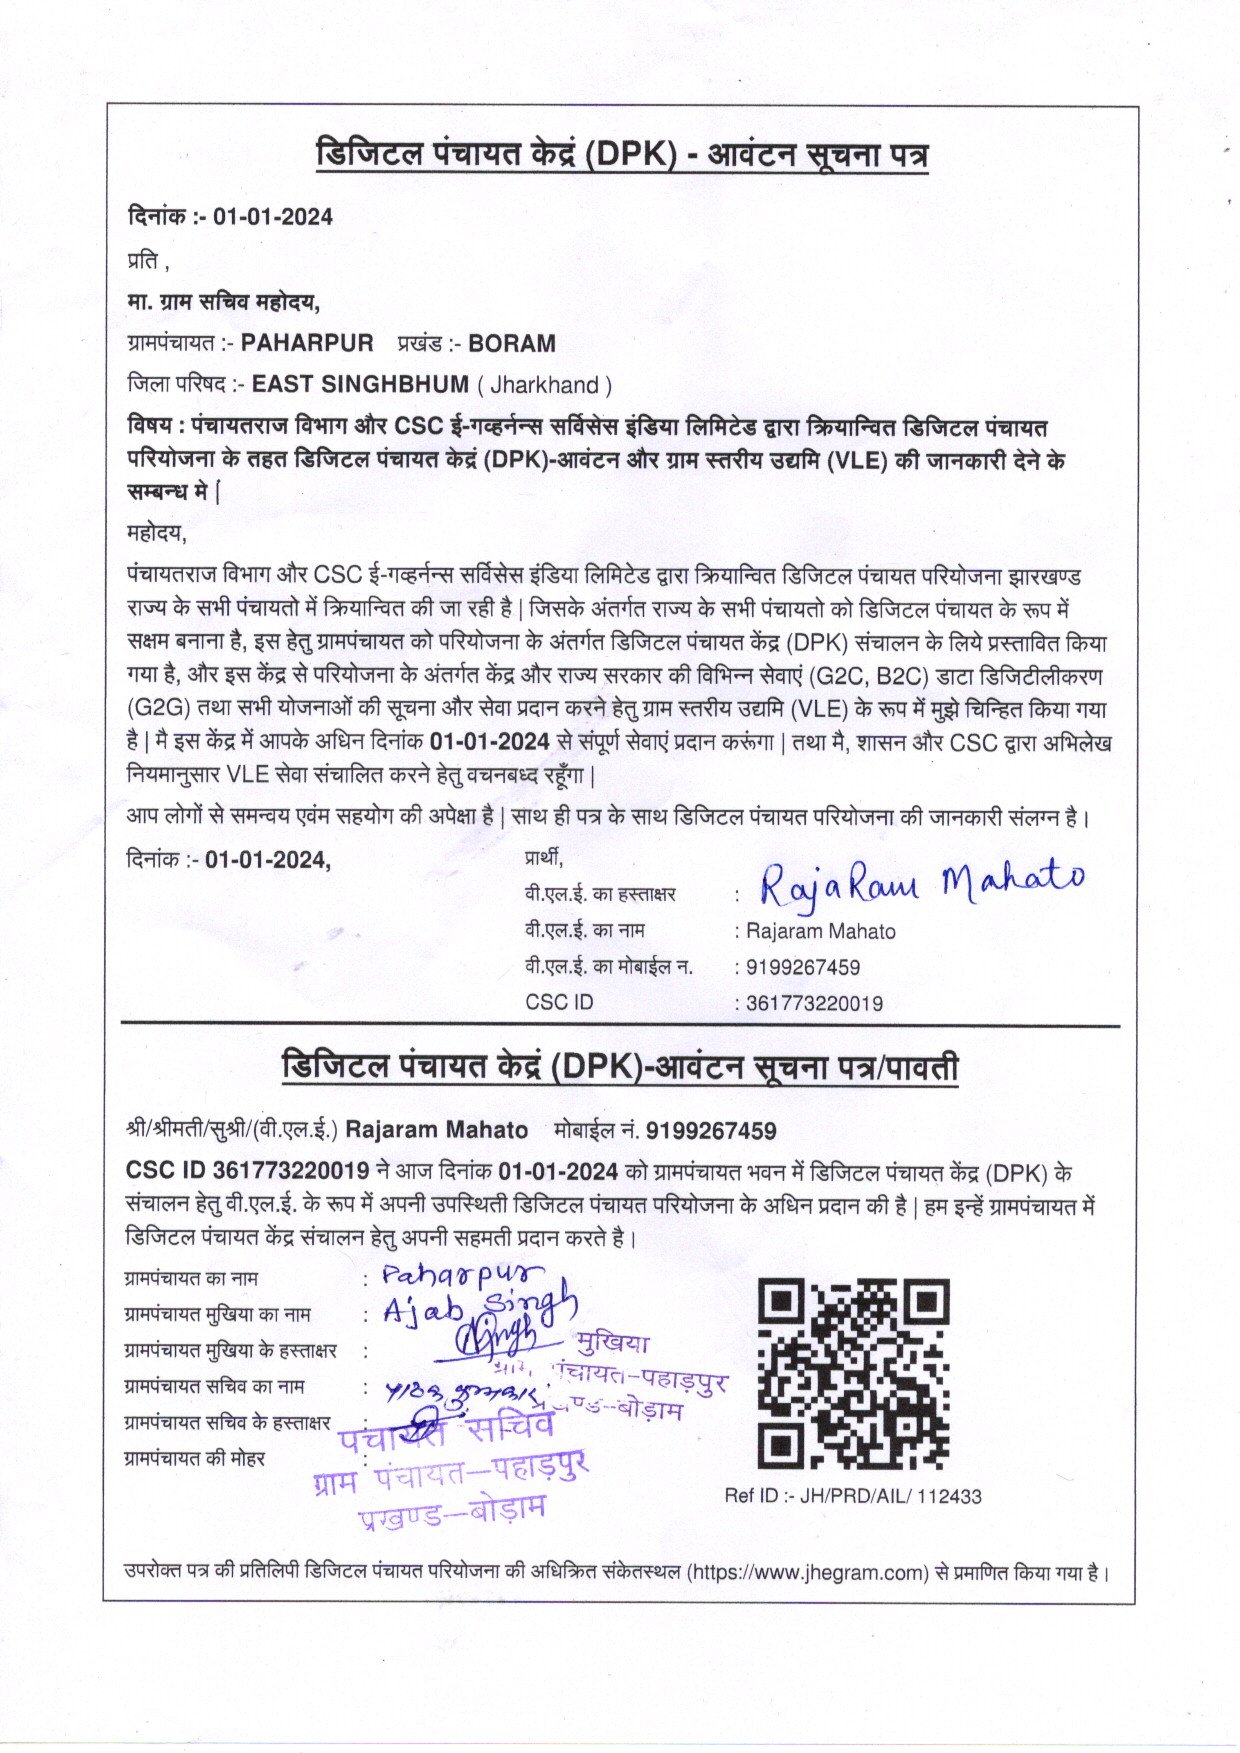 डिजिटल पंचायत केद्रं (DPK) - आवंटन सूचना पत्र
दिनांक :- 01-01-2024
प्रति ,
मा. ग्राम सचिव महोदय,
ग्रामपंचायत :- PAHARPUR प्रखंड :- BORAM
जिला परिषद :- EAST SINGHBHUM ( Jharkhand )
विषय : पंचायतराज विभाग और CSC ई-गव्हर्नन्स सर्विसेस इंडिया लिमिटेड द्वारा क्रियान्वित डिजिटल पंचायत
परियोजना के तहत डिजिटल पंचायत केद्रं (DPK)-आवंटन और ग्राम स्तरीय उद्यमि (VLE) की जानकारी देने के
सम्बन्ध मे |
महोदय,
पंचायतराज विभाग और CSC ई-गव्हर्नन्स सर्विसेस इंडिया लिमिटेड द्वारा क्रियान्वित डिजिटल पंचायत परियोजना झारखण्ड
राज्य के सभी पंचायतो में क्रियान्वित की जा रही है | जिसके अंतर्गत राज्य के सभी पंचायतो को डिजिटल पंचायत के रूप में
सक्षम बनाना है, इस हेतु ग्रामपंचायत को परियोजना के अंतर्गत डिजिटल पंचायत केंद्र (DPK) संचालन के लिये प्रस्तावित किया
गया है, और इस केंद्र से परियोजना के अंतर्गत केंद्र और राज्य सरकार की विभिन्न सेवाएं (G2C, B2C) डाटा डिजिटीलीकरण
(G2G) तथा सभी योजनाओं की सूचना और सेवा प्रदान करने हेतु ग्राम स्तरीय उद्यमि (VLE) के रूप में मुझे चिन्हित किया गया
है | मै इस केंद्र में आपके अधिन दिनांक 01-01-2024 से संपूर्ण सेवाएं प्रदान करूंगा | तथा मै, शासन और CSC द्वारा अभिलेख
नियमानुसार VLE सेवा संचालित करने हेतु वचनबध्द रहूँगा |
आप लोगों से समन्वय एवंम सहयोग की अपेक्षा है | साथ ही पत्र के साथ डिजिटल पंचायत परियोजना की जानकारी संलग्न है।
दिनांक :- 01-01-2024,
प्रार्थी,
वी.एल.ई. का हस्ताक्षर : RajaRam Mahato
वी.एल.ई. का नाम : Rajaram Mahato
वी.एल.ई. का मोबाईल न. : 9199267459
CSC ID : 361773220019
डिजिटल पंचायत केद्रं (DPK)-आवंटन सूचना पत्र/पावती
श्री/श्रीमती/सुश्री/(वी.एल.ई.) Rajaram Mahato मोबाईल नं. 9199267459
CSC ID 361773220019 ने आज दिनांक 01-01-2024 को ग्रामपंचायत भवन में डिजिटल पंचायत केंद्र (DPK) के
संचालन हेतु वी.एल.ई. के रूप में अपनी उपस्थिती डिजिटल पंचायत परियोजना के अधिन प्रदान की है | हम इन्हें ग्रामपंचायत में
डिजिटल पंचायत केंद्र संचालन हेतु अपनी सहमती प्रदान करते है।
ग्रामपंचायत का नाम : Paharpur
ग्रामपंचायत मुखिया का नाम : Ajab Singh
ग्रामपंचायत मुखिया के हस्ताक्षर : Singh
मुखिया
ग्राम पंचायत-पहाड़पुर
ग्रामपंचायत सचिव का नाम :
प्रखण्ड-बोड़ाम
ग्रामपंचायत सचिव के हस्ताक्षर :
पंचायत सचिव
ग्रामपंचायत की मोहर :
ग्राम पंचायत-पहाड़पुर
प्रखण्ड-बोड़ाम
Ref ID :- JH/PRD/AIL/ 112433
उपरोक्त पत्र की प्रतिलिपी डिजिटल पंचायत परियोजना की अधिक्रित संकेतस्थल (https://www.jhegram.com) से प्रमाणित किया गया है।